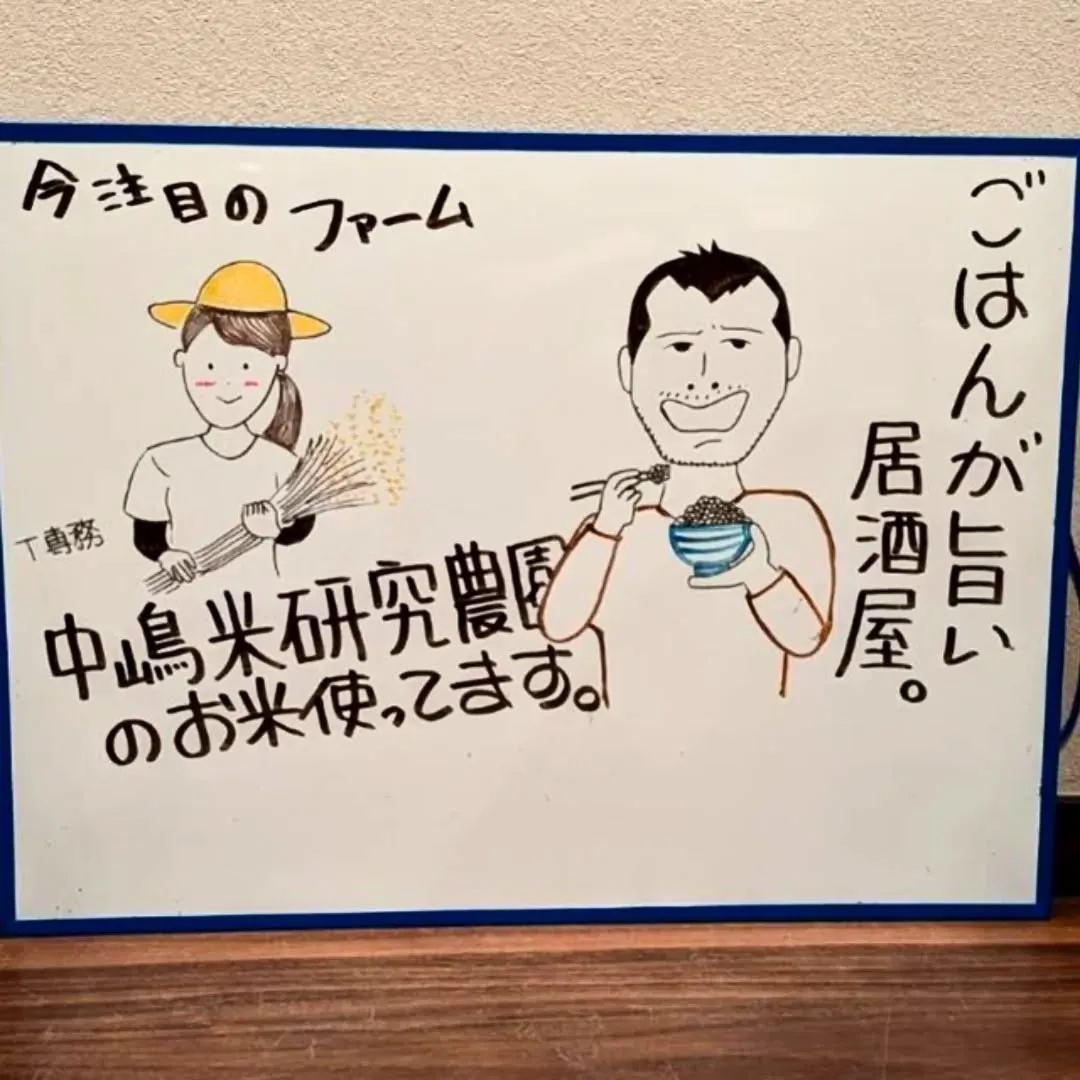 今注目のファーム
T専務
中嶋米研究農園
のお米使ってます。
ごはんが旨い
居酒屋。